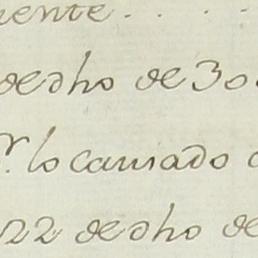 uente . . . .
de dho de 30
r. lo causado
22 de dho de